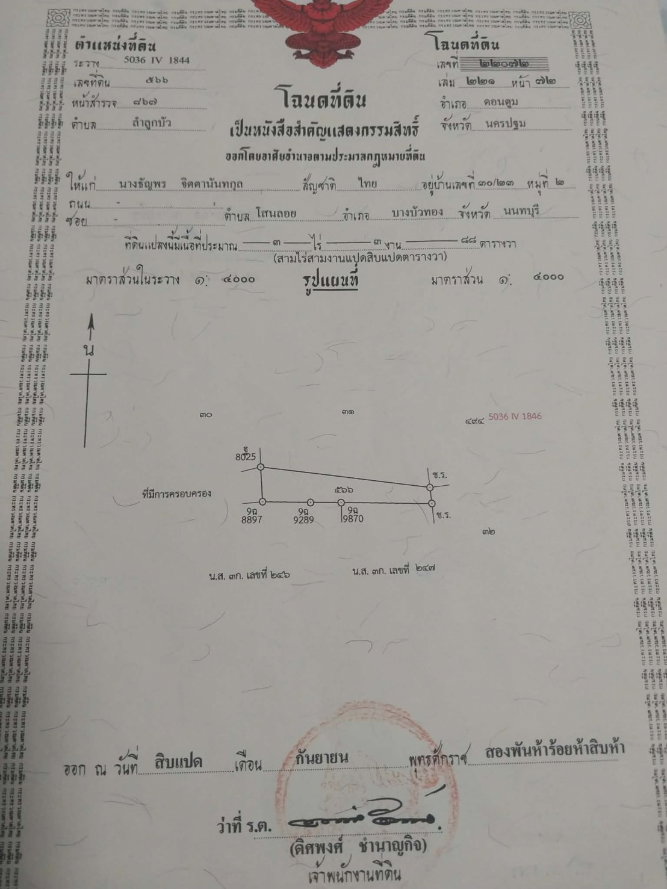 ตำแหน่งที่ดิน
ระวาง 5036 IV 1844
เลขที่ดิน ๕๖๖
หน้าสำรวจ ๘๖๗
ตำบล ลำลูกบัว
โฉนดที่ดิน
เลขที่ ๒๒๐๗๒
เล่ม ๒๒๑ หน้า ๗๒
อำเภอ ดอนตูม
จังหวัด นครปฐม
โฉนดที่ดิน
เป็นหนังสือสำคัญแสดงกรรมสิทธิ์
ออกโดยอาศัยอำนาจตามประมวลกฎหมายที่ดิน
ให้แก่ นางธัญพร จิตตานันทกุล สัญชาติ ไทย อยู่บ้านเลขที่ ๓๐/๒๓ หมู่ที่ ๒
ถนน -
ซอย - ตำบล โสนลอย อำเภอ บางบัวทอง จังหวัด นนทบุรี
ที่ดินแปลงนี้มีเนื้อที่ประมาณ ๓ ไร่ ๓ งาน ๘๘ ตารางวา
(สามไร่สามงานแปดสิบแปดตารางวา)
มาตราส่วนในระวาง ๑: ๔๐๐๐ รูปแผนที่ มาตราส่วน ๑: ๔๐๐๐
น
๓๐ ๓๑ ๔๙๔ 5036 IV 1846
8025
ช.ร.
ที่มีการครอบครอง ๕๖๖
9ฉ 9ฉ 9ฉ ช.ร.
8897 9289 9870
๓๒
น.ส. ๓ก. เลขที่ ๒๔๖ น.ส. ๓ก. เลขที่ ๒๔๗
ออก ณ วันที่ สิบแปด เดือน กันยายน พุทธศักราช สองพันห้าร้อยห้าสิบห้า
ว่าที่ ร.ต.
(ดิศพงศ์ ชำนาญกิจ)
เจ้าพนักงานที่ดิน